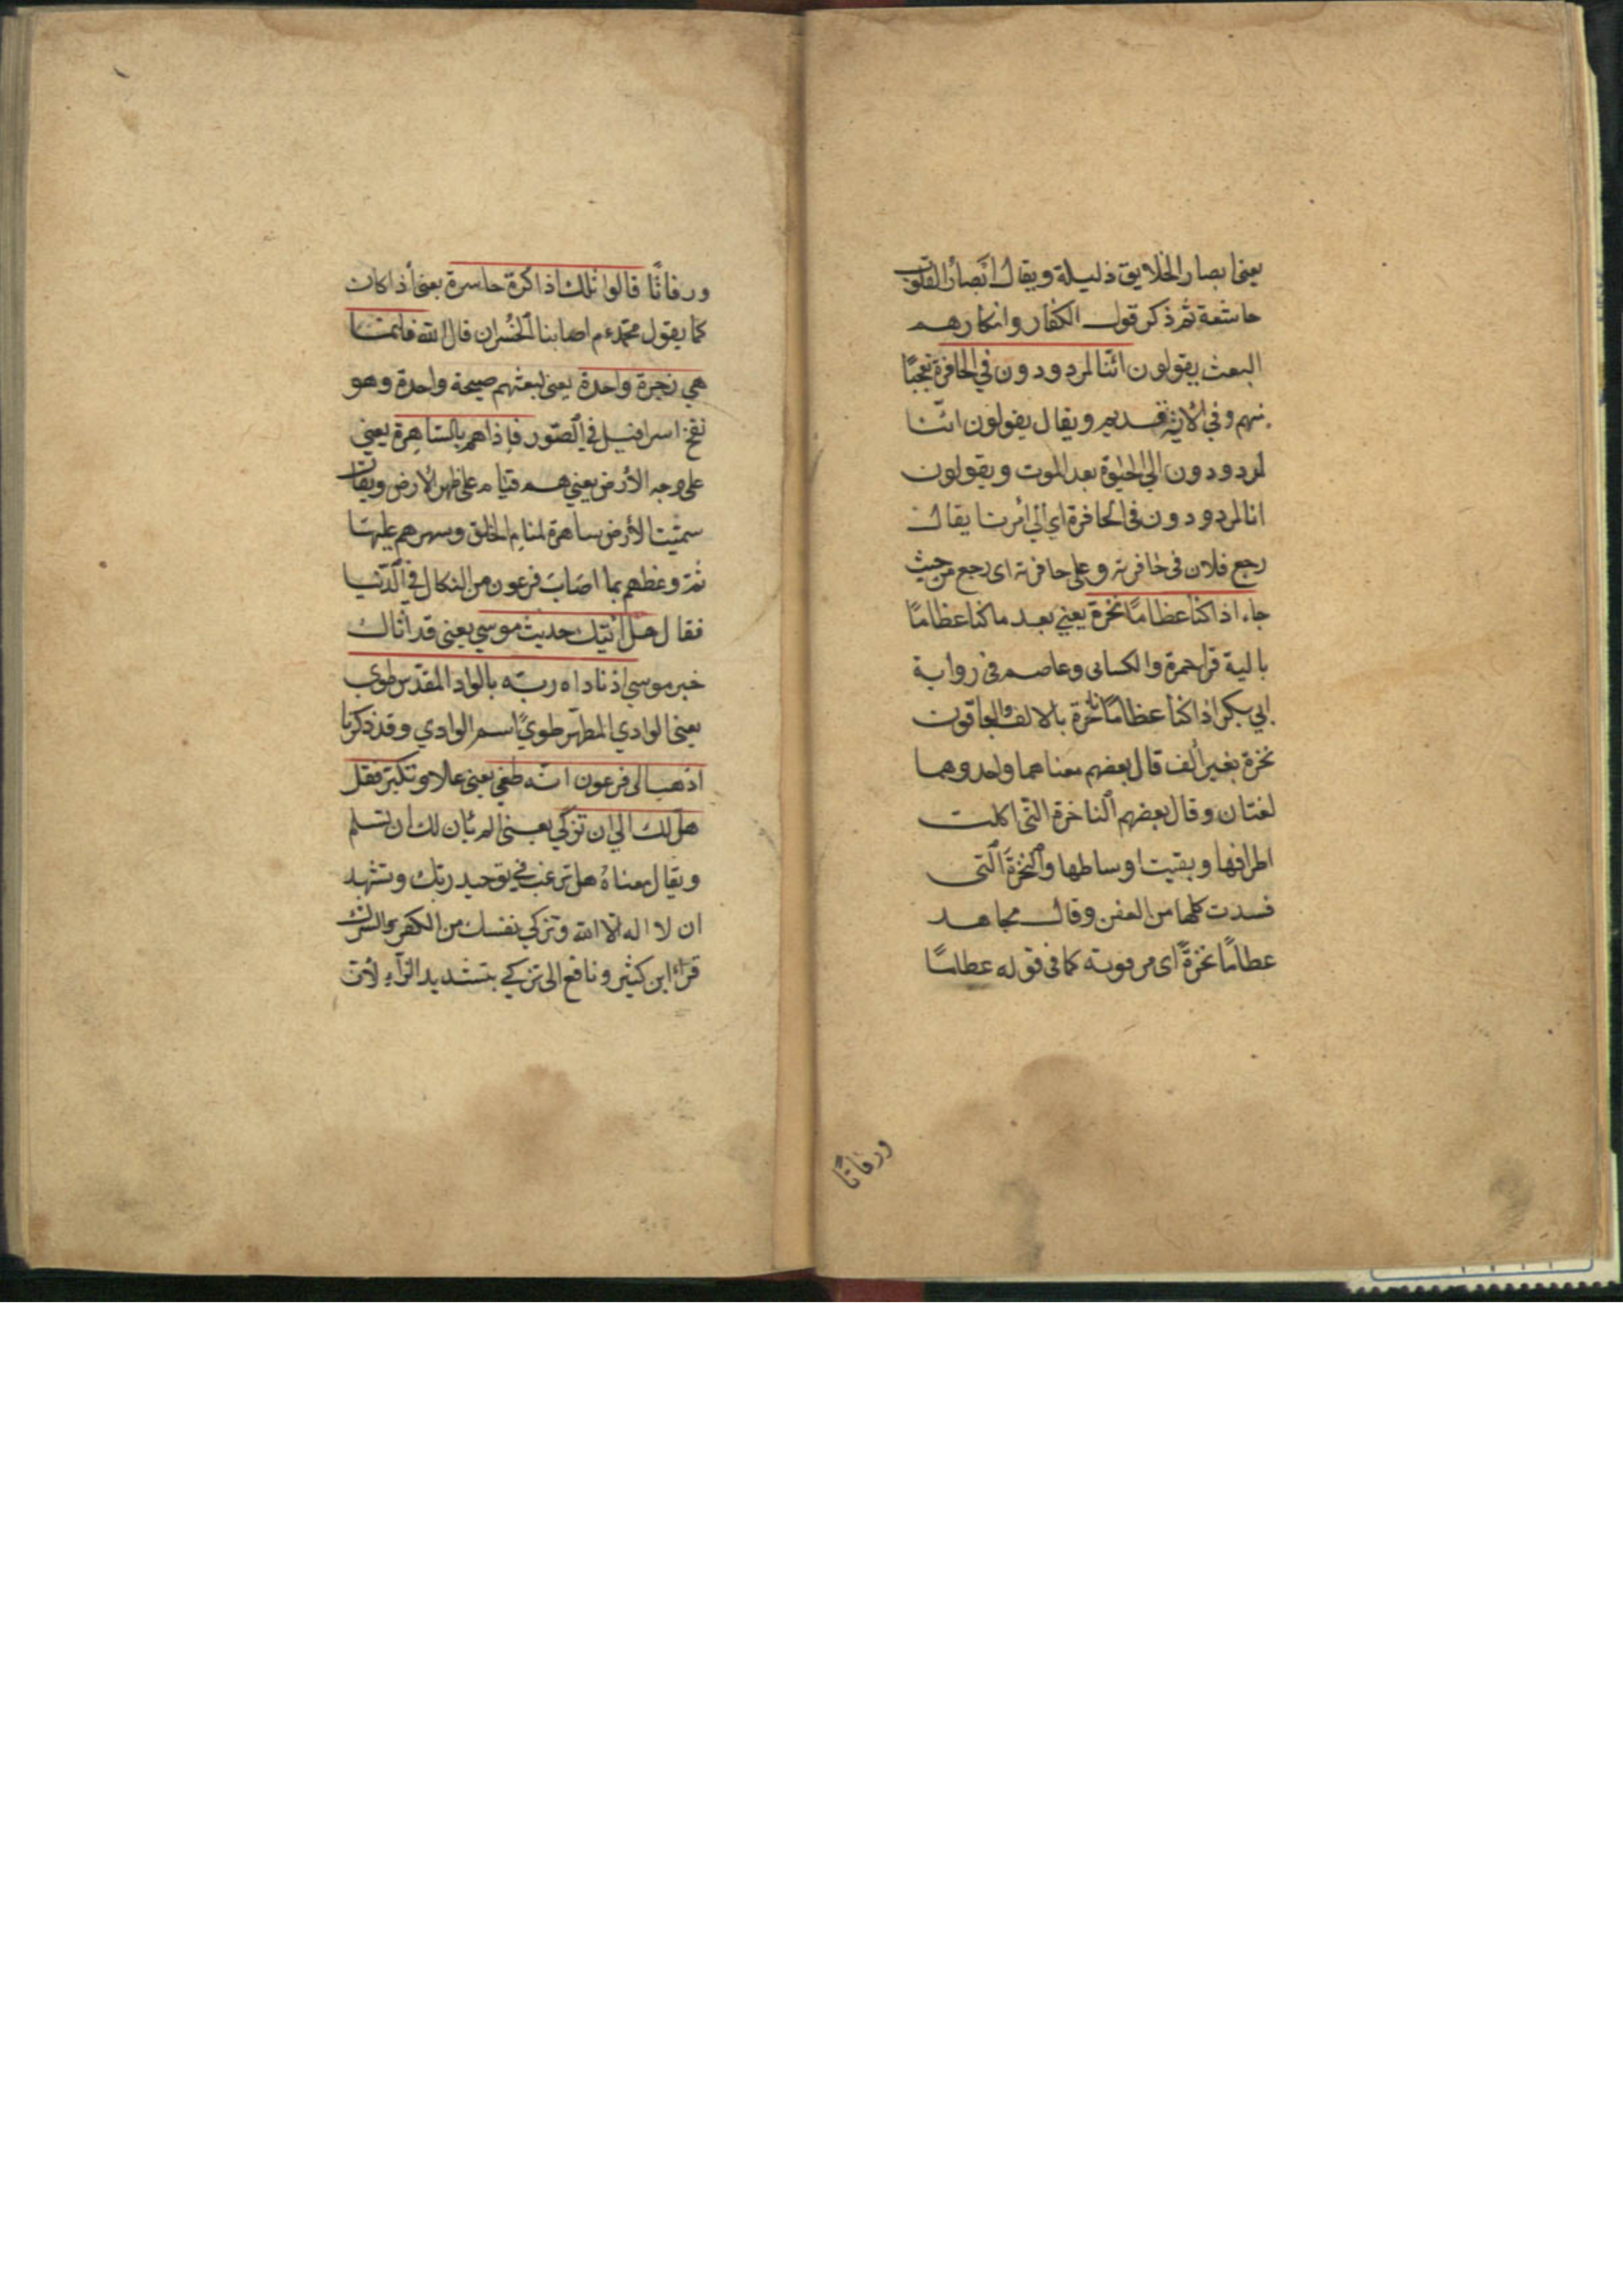 يعنى ابصار الخلايق ذليلة ويقال ابصار القلوب
خاشعة ثم ذكر قول الكفار وانكارهم
البعث يقولون ائنا لمردودون في الحافرة تعجبًا
منهم وفي الآية تقديم ويقال يقولون ائنا
لمردودون الي الحيوة بعد الموت ويقولون
انا لمردودون في الحافرة اي الي امرنا يقال
رجع فلان في حافرته وعلى حافرته اى رجع من حيث
جاء اذا كنا عظامًا نخرة يعني بعد ما كنا عظامًا
بالية قرا حمزة والكسائى وعاصم فى رواية
ابي بكر اذا كنا عظامًا ناخرة بالالف والباقون
نخرة بغير ألف قال بعضهم معناهما واحد وهما
لغتان وقال بعضهم الناخرة التى اكلت
اطرافها وبقيت اوساطها والنخرة التى
فسدت كلها من العفن وقال مجاهد
عظامًا نخرةً اى مرفوتة كما فى قوله عظامًا
ورفاتًا
ورفاتًا قالوا تلك اذا كرة خاسرة يعنى أذا كان
كما يقول محمد عم اصابنا الخسران قال الله فانما
هي زجرة واحدة يعنى لبعثهم صيحة واحدة وهو
نفخ اسرافيل في الصور فاذا هم بالساهرة يعنى
على وجه الأرض يعني هم قيام على ظهر الأرض ويقال
سميت الأرض ساهرة لمنام الخلق وسهرهم عليها
ثم وعظهم بما اصاب فرعون من النكال في الدنيا
فقال هل اتيك حديث موسي يعنى قد اتاك
خبر موسي اذ ناداه ربه بالواد المقدس طوى
يعنى الوادي المطهر طويً اسم الوادي وقد ذكرنا
اذهب الى فرعون انه طغى يعنى علا وتكبر فقل
هل لك الي ان تزكي يعنى الم يأن لك ان تسلم
ويقال معناه هل ترغب في توحيد ربك وتشهد
ان لا اله الا الله وتزكي نفسك من الكفر والشرك
قراء ابن كثير ونافع الى تزكي بتشديد الزآء لأن